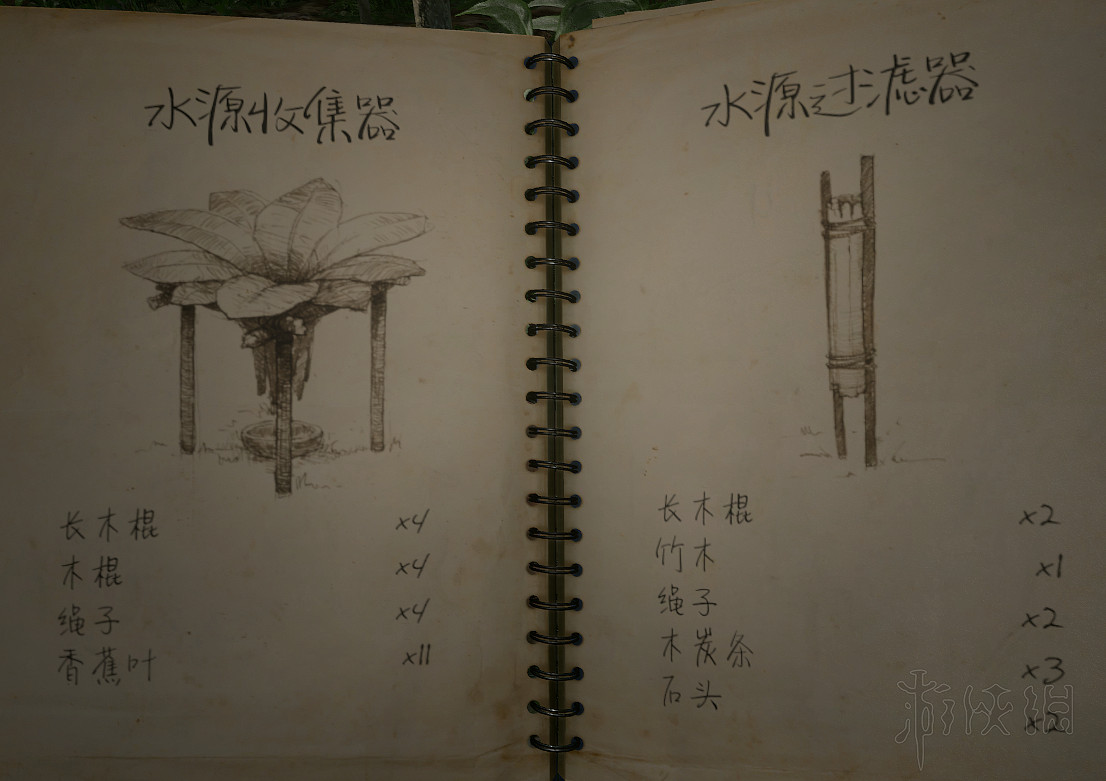 水源收集器
长木棍 x4
木棍 x4
绳子 x4
香蕉叶 x11
水源过滤器
长木棍 x2
竹木 x1
绳子 x2
木炭条 x3
石头 x2
游侠網